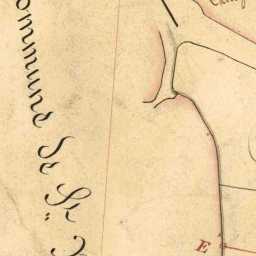 ommune de St.
E